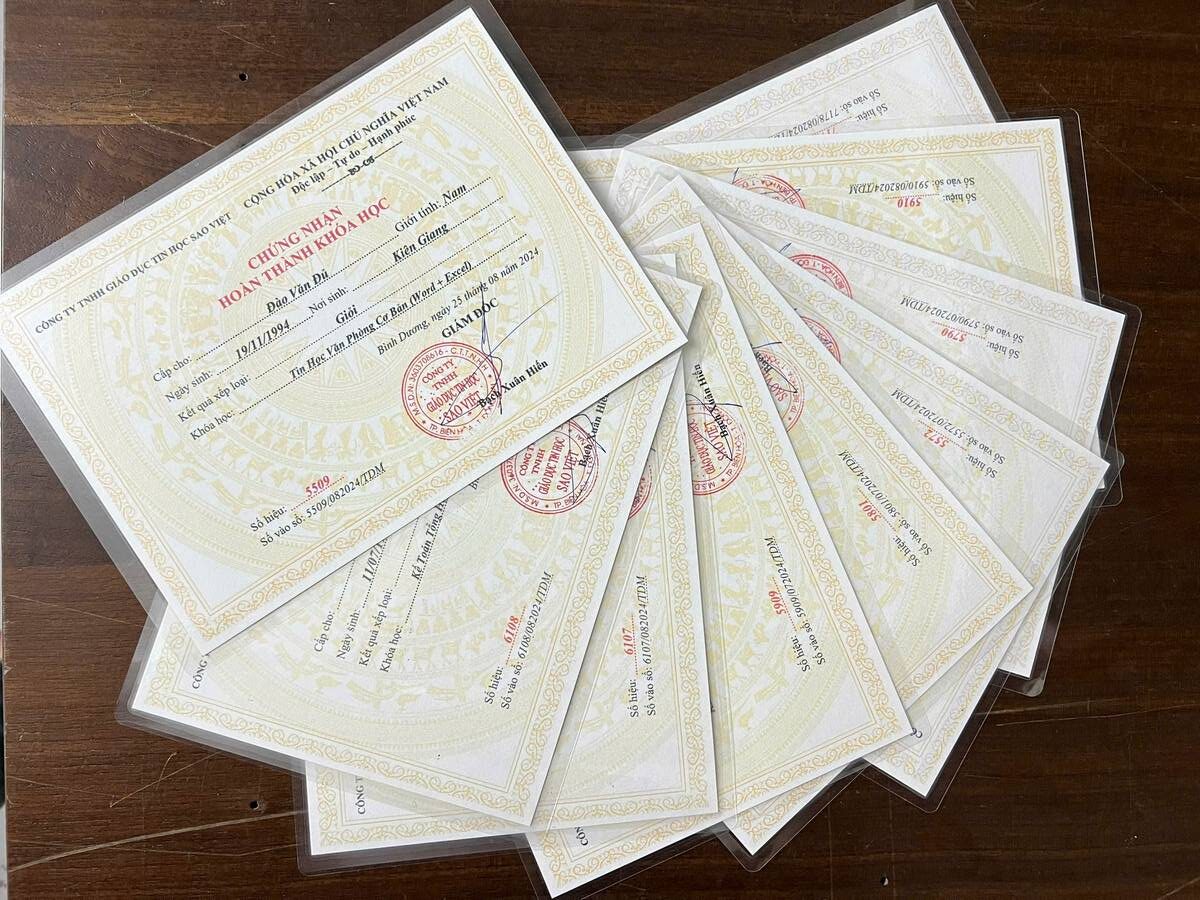 CÔNG TY TNHH GIÁO DỤC TIN HỌC SAO VIỆT
CỘNG HÒA XÃ HỘI CHỦ NGHĨA VIỆT NAM
Độc lập – Tự do – Hạnh phúc
CHỨNG NHẬN
HOÀN THÀNH KHÓA HỌC
Cấp cho: Đào Văn Dũ Giới tính: Nam
Ngày sinh: 19/11/1994 Nơi sinh: Kiên Giang
Kết quả xếp loại: Giỏi
Khóa học: Tin Học Văn Phòng Cơ Bản (Word + Excel)
Bình Dương, ngày 25 tháng 08 năm 2024
GIÁM ĐỐC
M.S.D.N: 3603706616 - C.T.T.N.H.H
CÔNG TY
TNHH
GIÁO DỤC TIN HỌC
SAO VIỆT
TP. BIÊN HÒA
Bạch Xuân Hiền
Số hiệu: 5509
Số vào sổ: 5509/082024/TDM
CÔNG
Cấp cho:
Ngày sinh: 11/07/1
Kết quả xếp loại:
Khóa học: Kế Toán Tổng
TNHH
GIÁO DỤC TIN HỌC
SAO VIỆT
Bạch Xuân Hiền
Số hiệu: 6108
Số vào sổ: 6108/082024/TDM
CÔNG T
Số hiệu: 6107
Số vào sổ: 6107/082024/TDM
CÔNG
SAO VIỆT
Bạch Xuân Hiền
Số hiệu: 5909
Số vào sổ: 5909/072024/TDM
Bạch
Số hiệu: 5801
Số vào sổ: 5801/072024/TDM
Số hiệu: 5572
Số vào sổ: 5572/072024/TDM
Số hiệu: 5790
Số vào sổ: 5790/072024/TDM
Số hiệu: 5910
Số vào sổ: 5910/082024/TDM
Số hiệu:
Số vào sổ: 7178/082024/T